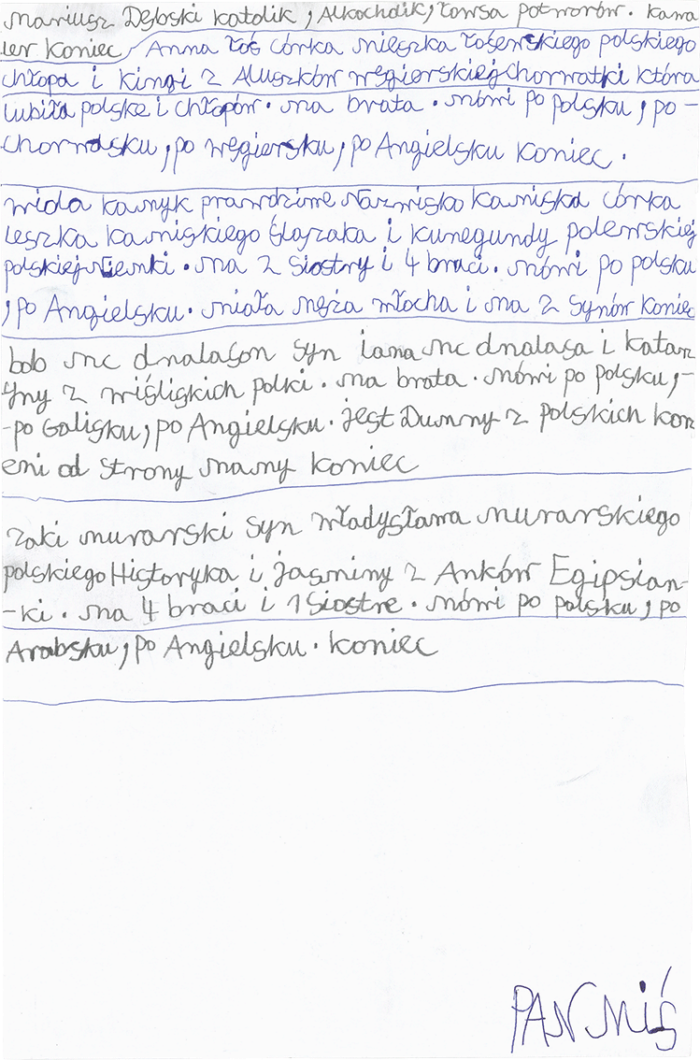 Mariusz Dębski katolik, Alkocholik, łowsa potworów. kawa
ler koniec / Anna łoś córka mieszka łosewskiego polskiego
chłopa i kingi z Aluszków węgierskiej chorwatki która
lubiła polske i chłopów. ma brata. mówi po polsku, po -
chorwdsku, po węgiersku, po Angielsku koniec.
wiola kamyk prawdziwe Nazwisko kamiska córka
leszka kamiskiego ślązaka i kunegundy polewskiej
polskiej niemki. ma 2 siostry i 4 braci. mówi po polsku
, po Angielsku. miała męża włocha i ma 2 synów koniec
bob mc dnalason syn iana mc dnalasa i katar
zyny z wiśliskich polki. ma brata. mówi po polsku, -
-po Galisku, po Angielsku. jest Dumny z polskich kor
eni od strony mamy koniec
zaki murarski syn władysława murarskiego
polskiego Historyka i jasminy z Anków Egipsian-
-ki. ma 4 braci i 1 siostre. mówi po polsku, po
Arabsku, po Angielsku. koniec
PAN MIŚ